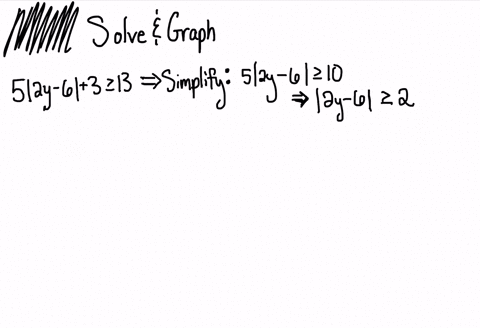 Solve & Graph
5|2y-6|+3≥13 ⇒ Simplify: 5|2y-6|≥10
⇒ |2y-6| ≥ 2